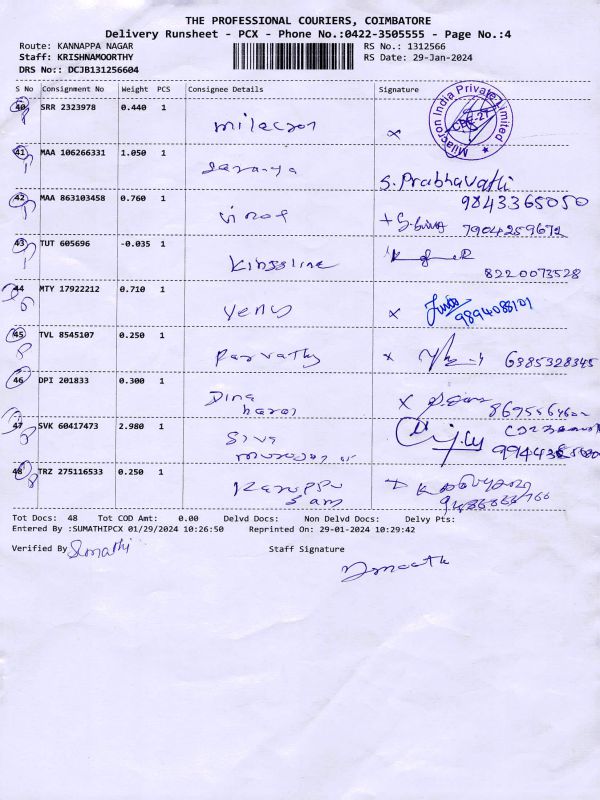 THE PROFESSIONAL COURIERS, COIMBATORE
Delivery Runsheet - PCX - Phone No.:0422-3505555 - Page No.:4
Route: KANNAPPA NAGAR
RS No.: 1312566
Staff: KRISHNAMOORTHY
RS Date: 29-Jan-2024
DRS No:: DCJB131256604
S No Consignment No Weight PCS Consignee Details Signature
40 SRR 2323978 0.440 1
milacron
x
Milacron India Private Limited
CBE-27
41 MAA 106266331 1.050 1
Saranya
S. Prabhavathi
9843365050
42 MAA 863103458 0.760 1
Vinoth
7904259672
43 TUT 605696 -0.035 1
Kingsline
8220073528
44 MTY 17922212 0.710 1
Venus
x
9894088101
45 TVL 8545107 0.250 1
Parvathy
x
6385328345
46 DPI 201833 0.300 1
Dina
karan
x
47 SVK 60417473 2.980 1
Siva
48 TRZ 275116533 0.250 1
Karuppu
Sam
Tot Docs: 48 Tot COD Amt: 0.00 Delvd Docs: Non Delvd Docs: Delvy Pts:
Entered By :SUMATHIPCX 01/29/2024 10:26:50 Reprinted On: 29-01-2024 10:29:42
Verified By Sumathi
Staff Signature